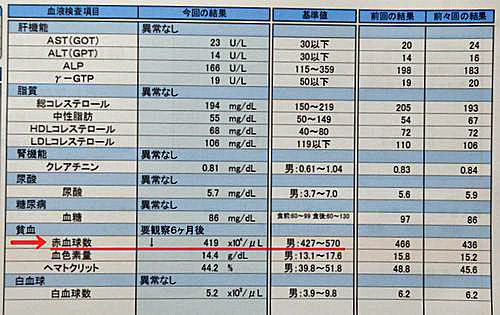 血液検査項目 今回の結果 基準値 前回の結果 前々回の結果
肝機能 異常なし
AST(GOT) 23 U/L 30以下 20 24
ALT(GPT) 14 U/L 30以下 14 16
ALP 166 U/L 115~359 198 183
γ-GTP 19 U/L 50以下 19 20
脂質 異常なし
総コレステロール 194 mg/dL 150~219 205 193
中性脂肪 55 mg/dL 50~149 54 67
HDLコレステロール 68 mg/dL 40~80 72 72
LDLコレステロール 106 mg/dL 119以下 110 106
腎機能 異常なし
クレアチニン 0.81 mg/dL 男:0.61~1.04 0.83 0.84
尿酸 異常なし
尿酸 5.7 mg/dL 男:3.7~7.0 5.6 5.9
糖尿病 異常なし
血糖 86 mg/dL 食前:60~99 食後:60~130 97 86
貧血 要観察6ヶ月後
赤血球数 ↓ 419 x10⁴/μL 男:427~570 466 436
血色素量 14.4 g/dL 男:13.1~17.6 15.8 15.2
ヘマトクリット 44.2 % 男:39.8~51.8 48.8 45.6
白血球 異常なし
白血球数 5.2 x10³/μL 男:3.9~9.8 6.2 6.2